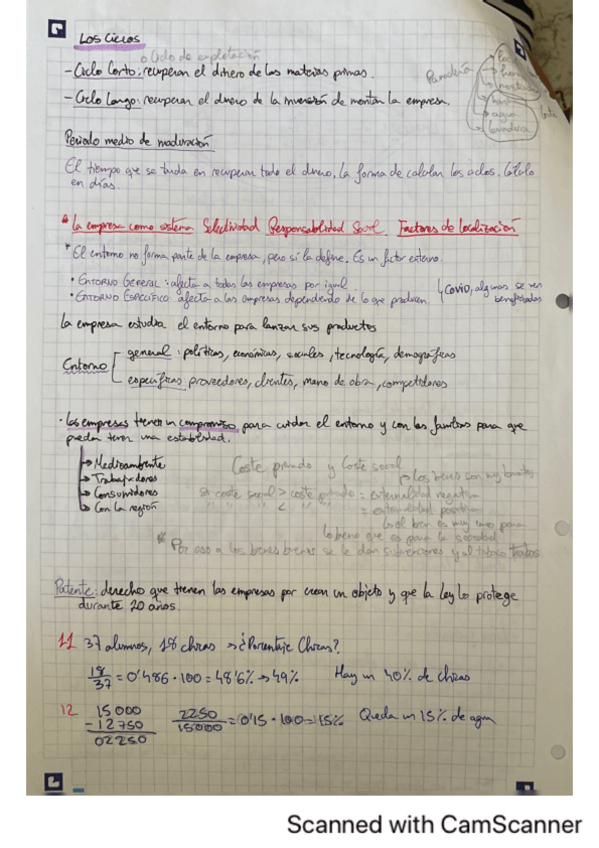 Los Ciclos
o Ciclo de explotación
- Ciclo Corto: recuperan el dinero de las materias primas.
- Ciclo Largo: recuperan el dinero de la inversión de montar la empresa.
Panadería
horno
harina
agua
levadura
Corto
Periodo medio de maduración
El tiempo que se tarda en recuperar todo el dinero, la forma de calcular los ciclos. Cálculo
en días.
* La empresa como sistema Selectividad Responsabilidad Social Factores de localización
* El entorno no forma parte de la empresa, pero sí la define. Es un factor externo.
• ENTORNO General: afecta a todas las empresas por igual
• ENTORNO Específico: afecta a las empresas dependiendo de lo que producen.
↳ Covid, algunas se ven
beneficiadas
La empresa estudia el entorno para lanzar sus productos
Entorno
general: políticas, económicas, sociales, tecnología, demográficas
específicas: proveedores, clientes, mano de obra, competidores
· Las empresas tienen un compromiso para cuidar el entorno y con las familias para que
puedan tener una estabilidad.
→ Medioambiente
→ Trabajadores
→ Consumidores
→ Con la región
Coste privado y Coste social
si coste social > coste privado = externalidad negativa
" " " < " " = externalidad positiva
lo bueno que es para la sociedad
* Por eso a los bienes se le dan subvenciones y al
Patente: derecho que tienen las empresas por crear un objeto y que la ley lo protege
durante 20 años.
11 37 alumnos, 18 chicas → ¿Porcentaje Chicas?
18/37 = 0'486 · 100 = 48'6% → 49% Hay un 40% de chicas
12 15000
- 12750
02250
2250/15000 = 0'15 · 100 = 15% Queda un 15% de agua
Scanned with CamScanner